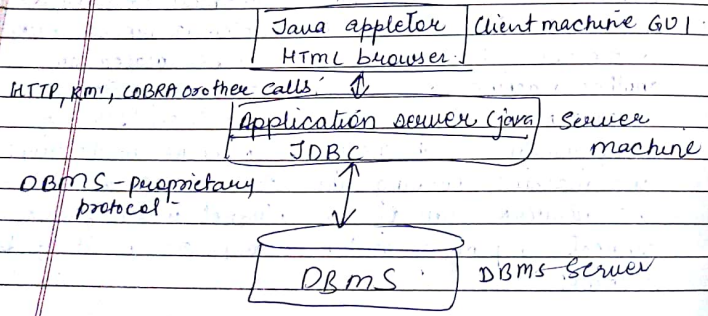 Java appletor
HTML browser.
Client machine GUI.
HTTP, RMI, COBRA or other calls.
Application server (java)
JDBC
Server
machine
DBMS - proprietary
protocol -
DBMS
DBMS Server